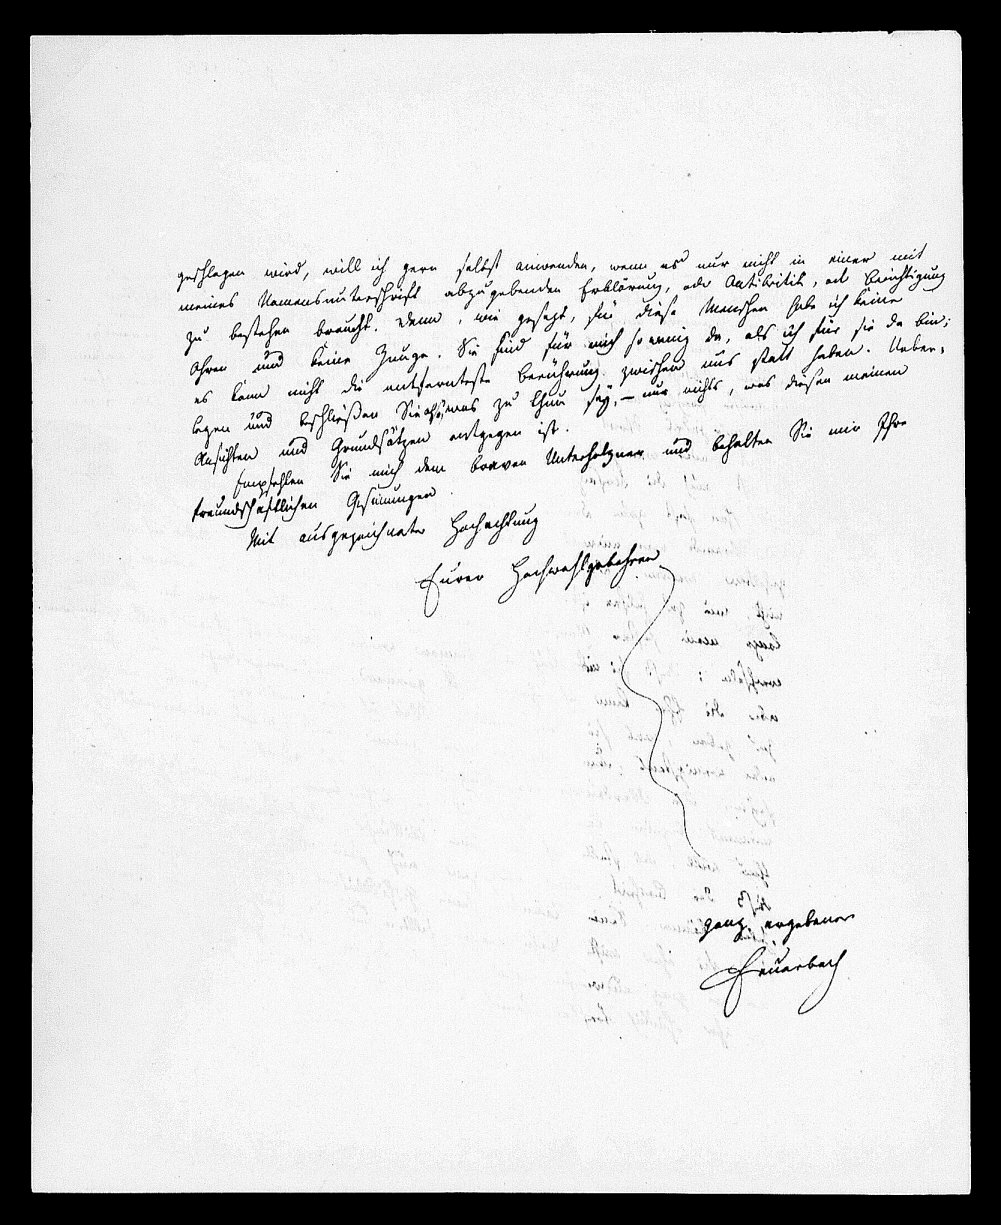 geschlagen wird, will ich gern selbst anwenden, wenn es nur nicht in einer mit
meines Namensunterschrift abzugebenden Erklärung, oder Antikritik, od Berichtigung
zu bestehen braucht. Denn, wie gesagt, für diese Menschen habe ich keine
Ohren und keine Zunge. Sie sind für mich so wenig da, als ich für sie da bin;
es kann nicht die entfernteste Berührung zwischen uns statt haben. Ueber-
legen und beschließen Sie also, was zu thun sey, – nur nichts, was diesen meinen
Ansichten und Grundsätzen entgegen ist.
Empfehlen Sie mich dem braven Unterholzner und behalten Sie mir Ihre
freundschaftlichen Gesinnungen
Mit ausgezeichneter Hochachtung
Eurer Hochwohlgebohren
ganz ergebener
Feuerbach